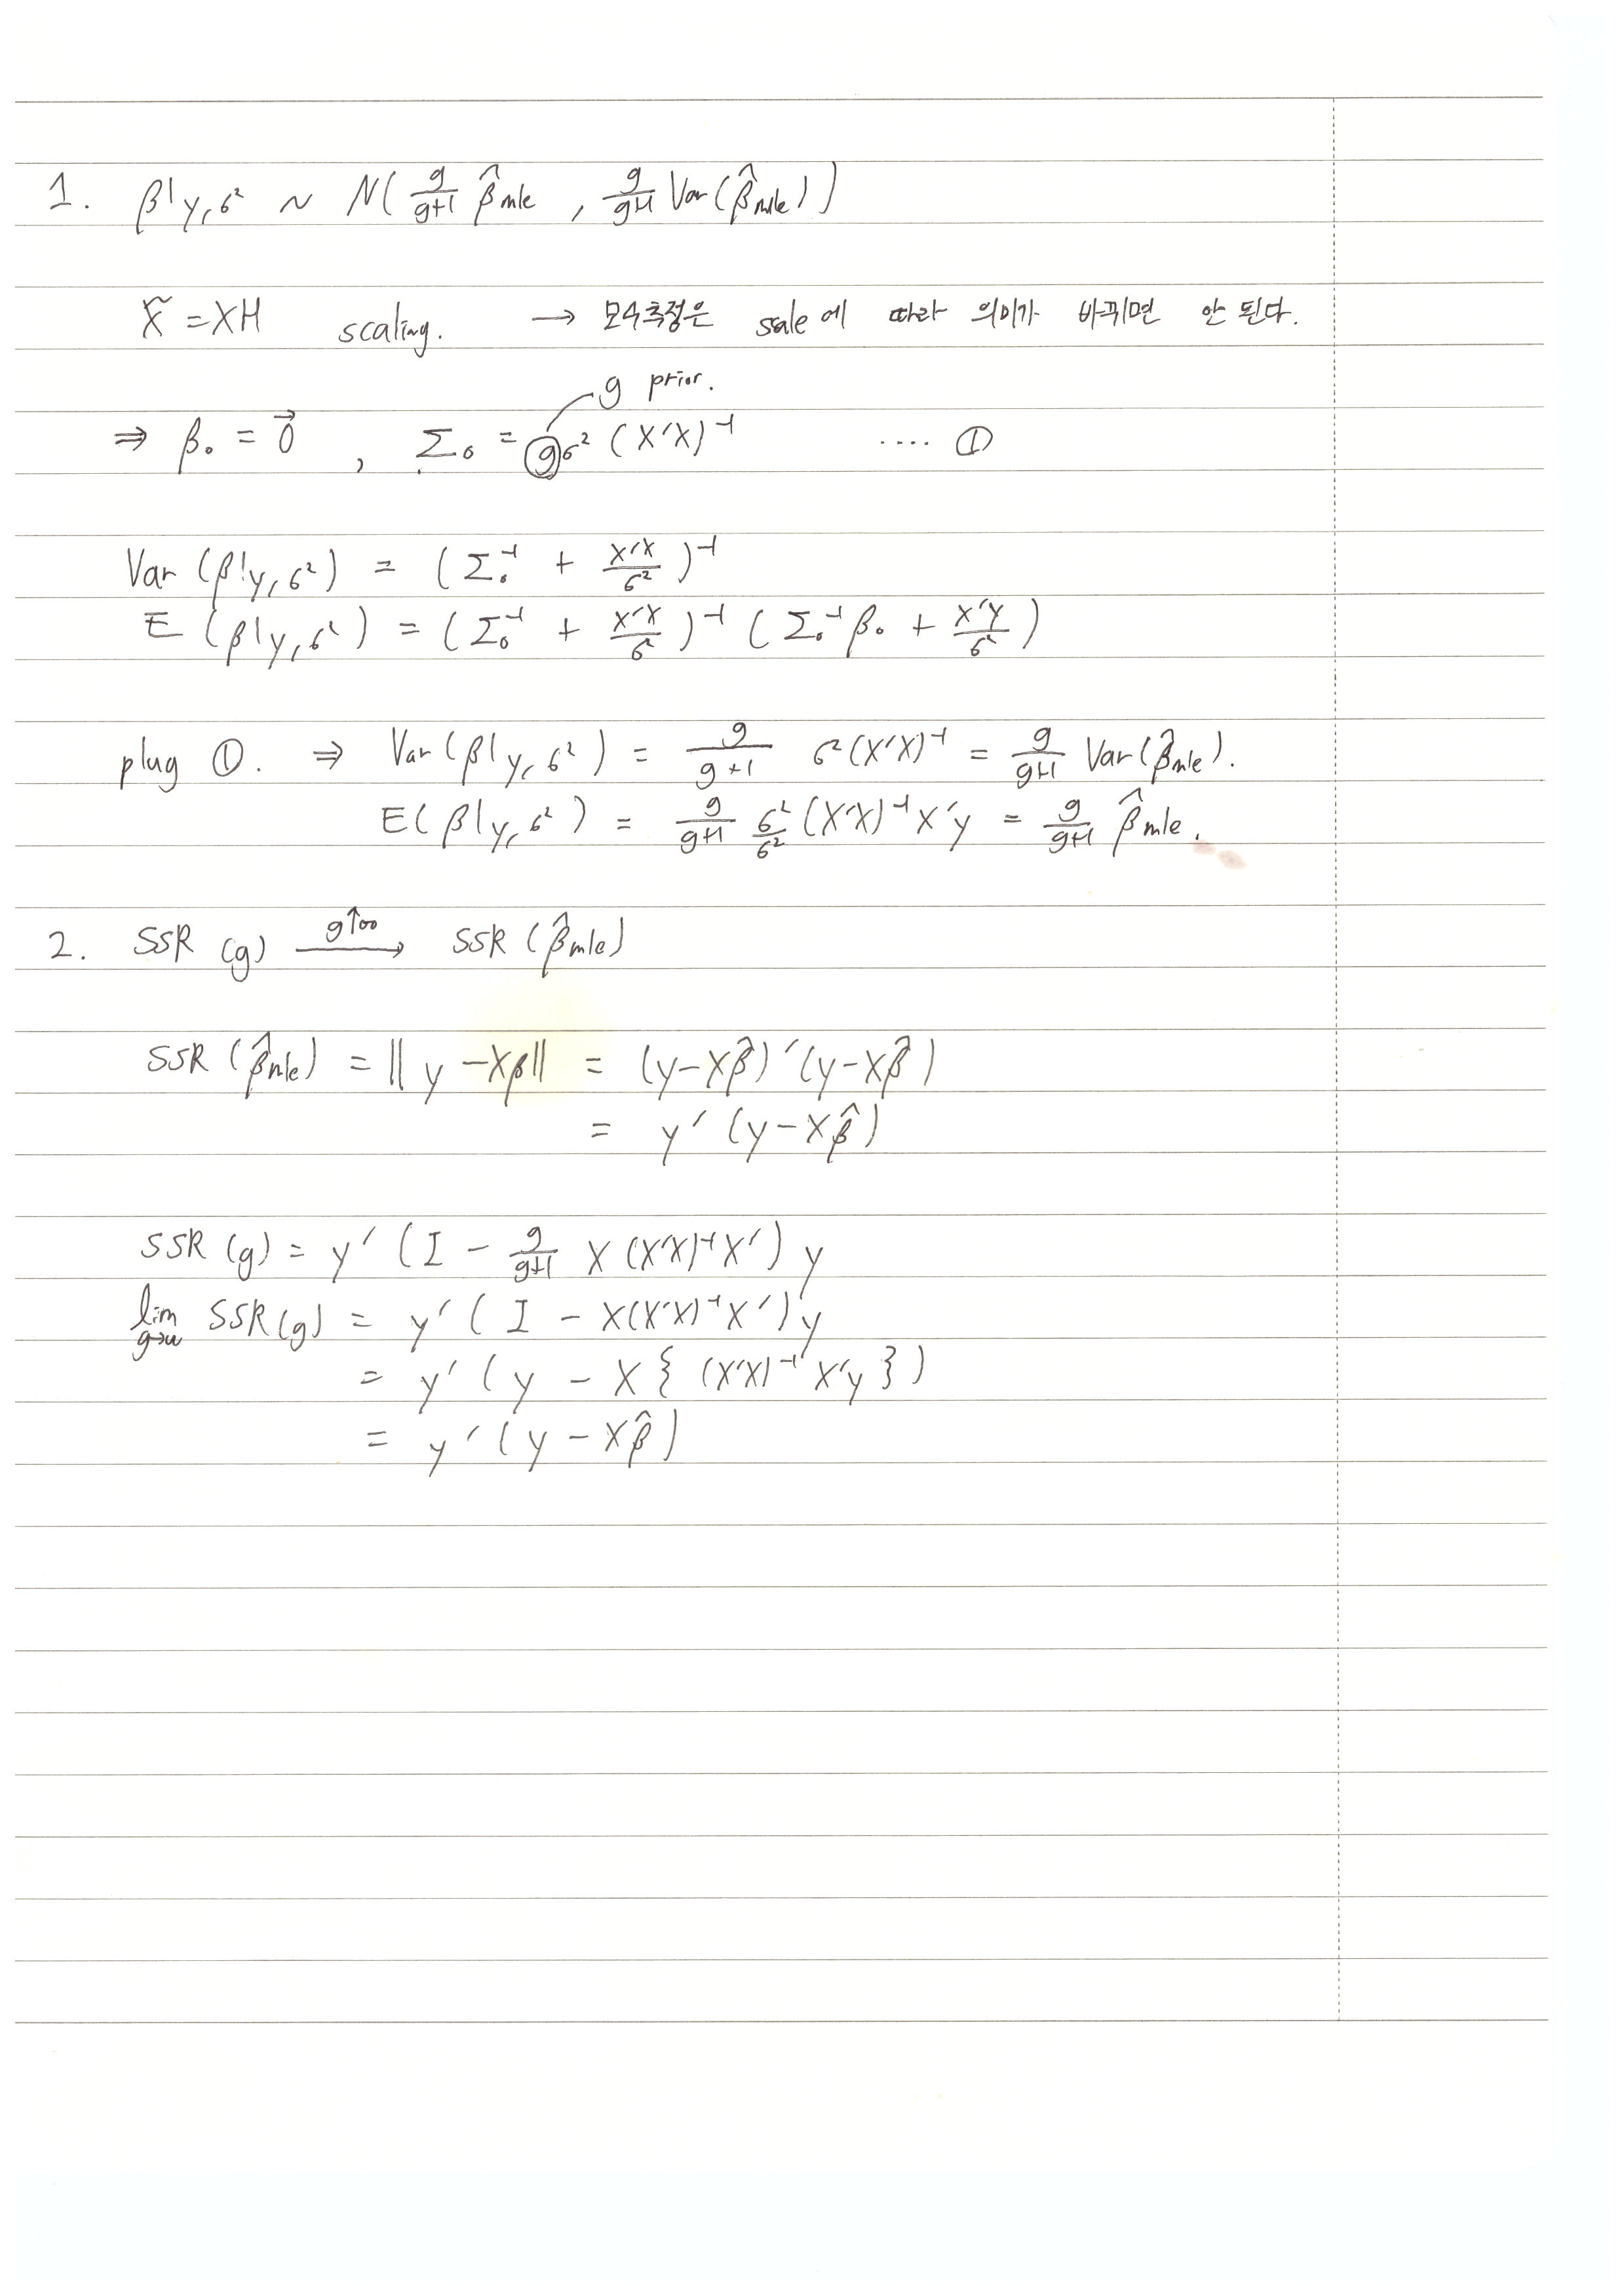 1. β|y,σ² ~ N( g/(g+1) β̂mle , g/(g+1) Var(β̂mle) )
X̃ = XH scaling. → 모수추정은 sale에 따라 의미가 바뀌면 안 된다.
g prior.
⇒ β₀ = 0⃗ , Σ₀ = gσ² (X'X)⁻¹ .... ①
Var (β|y,σ²) = (Σ₀⁻¹ + X'X/σ²)⁻¹
E (β|y,σ²) = (Σ₀⁻¹ + X'X/σ²)⁻¹ (Σ₀⁻¹β₀ + X'y/σ²)
plug ①. ⇒ Var(β|y,σ²) = g/(g+1) σ²(X'X)⁻¹ = g/(g+1) Var(β̂mle).
E(β|y,σ²) = g/(g+1) σ²/σ² (X'X)⁻¹X'y = g/(g+1) β̂mle.
2. SSR (g) —g↑∞→ SSR (β̂mle)
SSR (β̂mle) = || y -Xβ|| = (y-Xβ̂)'(y-Xβ̂)
= y' (y-Xβ̂)
SSR (g) = y' (I - g/(g+1) X (X'X)⁻¹X') y
lim g→∞ SSR(g) = y' ( I - X(X'X)⁻¹X')y
= y' (y - X{ (X'X)⁻¹ X'y })
= y' (y - Xβ̂)